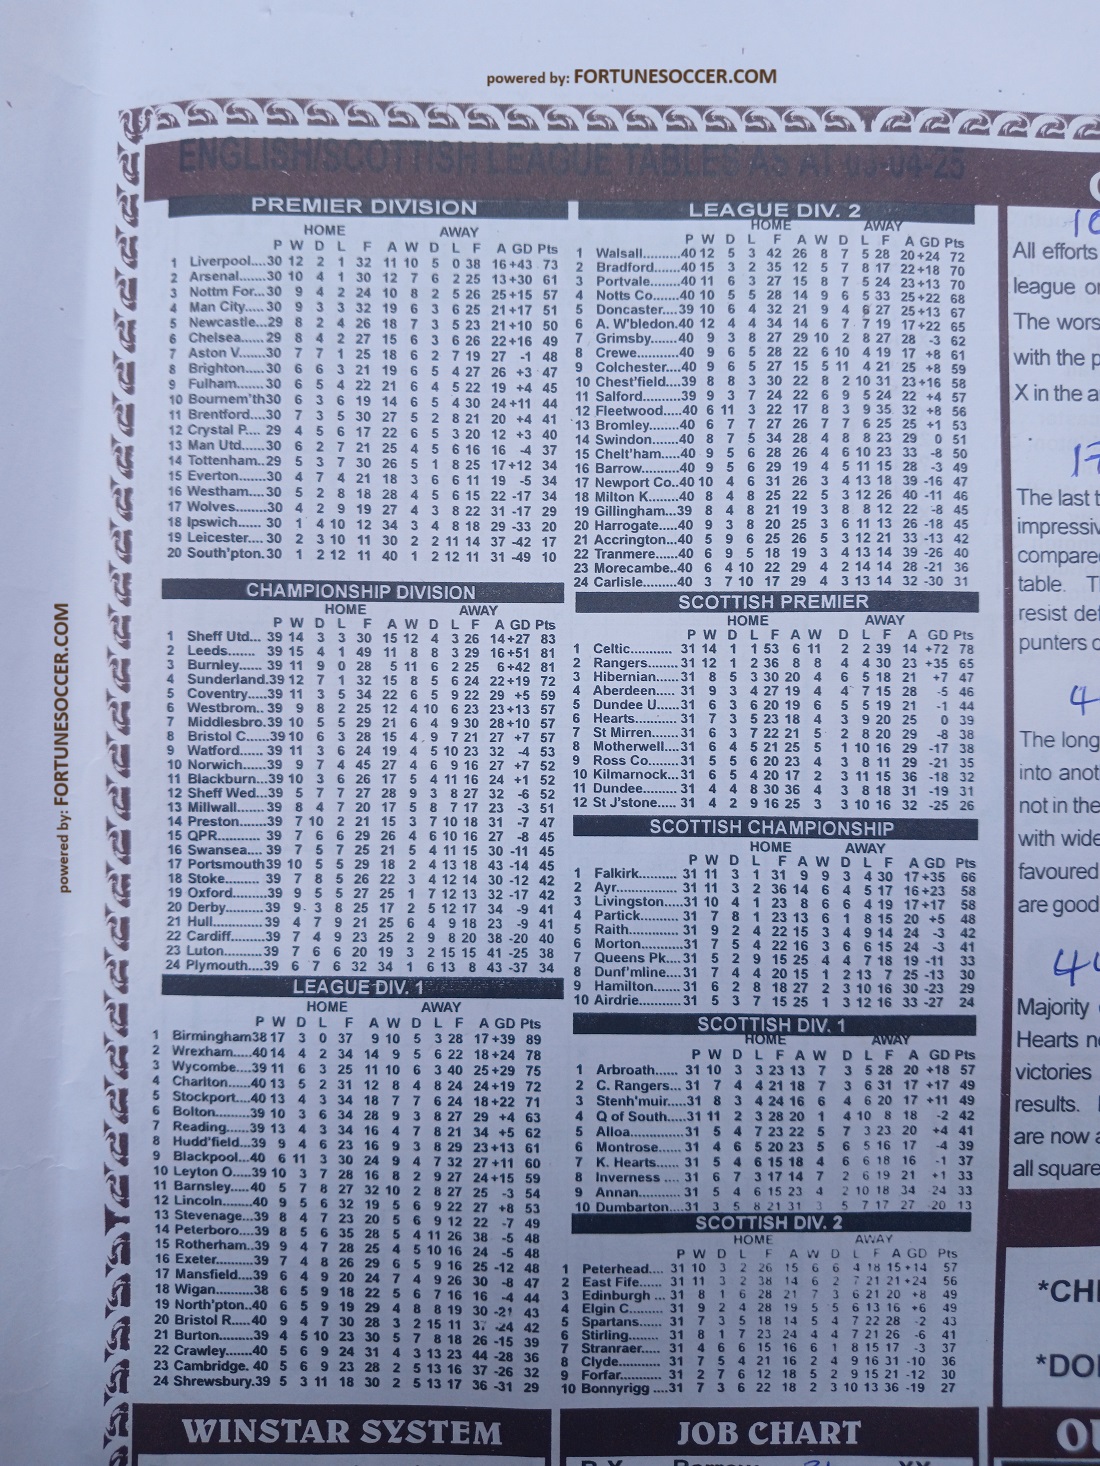 powered by: FORTUNESOCCER.COM
ENGLISH/SCOTTISH LEAGUE TABLES AS AT 05-04-25
PREMIER DIVISION
HOME AWAY
P W D L F A W D L F A GD Pts
1 Liverpool.....30 12 2 1 32 11 10 5 0 38 16 +43 73
2 Arsenal.......30 10 4 1 30 12 7 6 2 25 13 +30 61
3 Nottm For...30 9 4 2 24 10 8 2 5 26 25 +15 57
4 Man City.....30 9 3 3 32 19 6 3 6 25 21 +17 51
5 Newcastle...29 8 2 4 26 18 7 3 5 23 21 +10 50
6 Chelsea......29 8 4 2 27 15 6 3 6 26 22 +16 49
7 Aston V......30 7 7 1 25 18 6 2 7 19 27 -1 48
8 Brighton.....30 6 6 3 21 19 6 5 4 27 26 +3 47
9 Fulham.......30 6 5 4 22 21 6 4 5 22 19 +4 45
10 Bournem'th30 6 3 6 19 14 6 5 4 30 24 +11 44
11 Brentford....30 7 3 5 30 27 5 2 8 21 20 +4 41
12 Crystal P....29 4 5 6 17 22 6 5 3 20 12 +3 40
13 Man Utd.....30 6 2 7 21 25 4 5 6 16 16 -4 37
14 Tottenham..29 5 3 7 30 26 5 1 8 25 17 +12 34
15 Everton......30 4 7 4 21 18 3 6 6 11 19 -5 34
16 Westham....30 5 2 8 18 28 4 5 6 15 22 -17 34
17 Wolves.......30 4 2 9 19 27 4 3 8 22 31 -17 29
18 Ipswich......30 1 4 10 12 34 3 4 8 18 29 -33 20
19 Leicester....30 2 3 10 11 30 2 2 11 14 37 -42 17
20 South'pton.30 1 2 12 11 40 1 2 12 11 31 -49 10
CHAMPIONSHIP DIVISION
HOME AWAY
P W D L F A W D L F A GD Pts
1 Sheff Utd... 39 14 3 3 30 15 12 4 3 26 14 +27 83
2 Leeds....... 39 15 4 1 49 11 8 8 3 29 16 +51 81
3 Burnley.... 39 11 9 0 28 5 11 6 2 25 6 +42 81
4 Sunderland.39 12 7 1 32 15 8 5 6 24 22 +19 72
5 Coventry....39 11 3 5 34 22 6 5 9 22 29 +5 59
6 Westbrom.. 39 9 8 2 25 12 4 10 6 23 23 +13 57
7 Middlesbro.39 10 5 5 29 21 6 4 9 30 28 +10 57
8 Bristol C....39 10 6 3 28 15 4 9 7 21 27 +7 57
9 Watford.....39 11 3 6 24 19 4 5 10 23 32 -4 53
10 Norwich.....39 7 7 4 45 27 4 6 9 16 27 +7 52
11 Blackburn...39 10 3 6 26 17 5 4 11 16 24 +1 52
12 Sheff Wed...39 5 7 7 27 28 9 3 8 27 32 -6 52
13 Millwall......39 8 4 7 20 17 5 8 7 17 23 -3 51
14 Preston......39 7 10 2 21 15 3 7 10 18 31 -7 47
15 QPR..........39 7 6 6 29 26 4 6 10 16 27 -8 45
16 Swansea....39 7 5 7 25 21 5 4 11 15 30 -11 45
17 Portsmouth39 10 5 5 29 18 2 4 13 18 43 -14 45
18 Stoke........39 7 8 5 26 22 3 4 12 14 30 -12 42
19 Oxford.......39 9 5 5 27 25 1 7 12 13 32 -17 42
20 Derby........39 9 3 8 25 17 2 5 12 17 34 -9 41
21 Hull...........39 4 7 9 21 25 6 4 9 18 23 -9 41
22 Cardiff.......39 7 4 9 23 25 2 9 8 20 38 -20 40
23 Luton........39 7 6 6 20 19 3 2 15 15 41 -25 38
24 Plymouth....39 6 7 6 32 34 1 6 13 8 43 -37 34
LEAGUE DIV. 1
HOME AWAY
P W D L F A W D L F A GD Pts
1 Birmingham38 17 3 0 37 9 10 5 3 28 17 +39 89
2 Wrexham.....40 14 4 2 34 14 9 5 6 22 18 +24 78
3 Wycombe...39 11 6 3 25 11 10 6 3 40 25 +29 75
4 Charlton.....40 13 5 2 31 12 8 4 8 24 24 +19 72
5 Stockport....40 13 4 3 34 18 7 7 6 24 18 +22 71
6 Bolton........39 10 3 6 34 28 9 3 8 27 29 +4 63
7 Reading......39 13 4 3 34 16 4 7 8 21 34 +5 62
8 Hudd'field...39 9 4 6 23 16 9 3 8 29 23 +13 61
9 Blackpool...40 6 11 3 30 24 9 4 7 32 27 +11 60
10 Leyton O....39 10 3 7 28 16 8 2 9 27 24 +15 59
11 Barnsley....40 5 7 8 27 32 10 2 8 27 25 -3 54
12 Lincoln......40 9 5 6 32 19 5 6 9 22 27 +8 53
13 Stevenage...39 8 4 7 23 20 5 6 9 12 22 -7 49
14 Peterboro...39 8 5 6 35 28 5 4 11 26 38 -5 48
15 Rotherham..39 9 4 7 28 25 4 5 10 16 24 -5 48
16 Exeter........39 7 4 8 26 29 6 5 9 16 25 -12 48
17 Mansfield....39 6 4 9 20 24 7 4 9 26 30 -8 47
18 Wigan........38 6 5 9 18 22 5 6 7 16 16 -4 44
19 North'pton..40 6 5 9 19 29 4 8 8 19 30 -21 43
20 Bristol R.....40 9 4 7 30 28 3 2 15 11 -24 42
21 Burton.......39 4 5 10 23 30 5 7 8 18 26 -15 39
22 Crawley.....40 5 6 9 24 31 4 3 13 23 44 -28 36
23 Cambridge. 40 5 6 9 23 28 2 5 13 16 37 -26 32
24 Shrewsbury.39 5 3 11 18 30 2 5 13 17 36 -31 29
LEAGUE DIV. 2
HOME AWAY
P W D L F A W D L F A GD Pts
1 Walsall.........40 12 5 3 42 26 8 7 5 28 20 +24 72
2 Bradford.......40 15 3 2 35 12 5 7 8 17 22 +18 70
3 Portvale.......40 11 6 3 27 15 8 7 5 24 23 +13 70
4 Notts Co......40 10 5 5 28 14 9 6 5 33 25 +22 68
5 Doncaster....39 10 6 4 32 21 9 4 6 27 25 +13 67
6 A. W'bledon.40 12 4 4 34 14 6 7 7 19 17 +22 65
7 Grimsby......40 9 3 8 27 29 10 2 8 27 28 -3 62
8 Crewe.........40 9 6 5 28 22 6 10 4 19 17 +8 61
9 Colchester...40 9 6 5 27 15 5 11 4 21 25 +8 59
10 Chest'field...39 8 8 3 30 22 8 2 10 31 23 +16 58
11 Salford.......39 9 3 7 24 22 6 9 5 24 22 +4 57
12 Fleetwood...40 6 11 3 22 17 8 3 9 35 32 +8 56
13 Bromley.....40 6 7 7 27 26 7 7 6 25 25 +1 53
14 Swindon.....40 8 7 5 34 28 4 8 8 23 29 0 51
15 Chelt'ham....40 9 5 6 28 26 4 6 10 23 33 -8 50
16 Barrow.......40 9 5 6 29 19 4 5 11 15 28 -3 49
17 Newport Co..40 10 4 6 31 26 3 4 13 18 39 -16 47
18 Milton K.....40 8 4 8 25 22 5 3 12 26 40 -11 46
19 Gillingham...39 8 4 8 21 19 3 8 8 12 22 -8 45
20 Harrogate....40 9 3 8 20 25 3 6 11 13 26 -18 45
21 Accrington...40 5 9 6 25 26 5 3 12 21 33 -13 42
22 Tranmere....40 6 9 5 18 19 3 4 13 14 39 -26 40
23 Morecambe..40 6 4 10 22 29 4 2 14 14 28 -21 36
24 Carlisle........40 3 7 10 17 29 4 3 13 14 32 -30 31
SCOTTISH PREMIER
HOME AWAY
P W D L F A W D L F A GD Pts
1 Celtic........... 31 14 1 1 53 6 11 2 2 39 14 +72 78
2 Rangers....... 31 12 1 2 36 8 8 4 4 30 23 +35 65
3 Hibernian..... 31 8 5 3 30 20 4 6 5 18 21 +7 47
4 Aberdeen..... 31 9 3 4 27 19 4 4 7 15 28 -5 46
5 Dundee U..... 31 6 3 6 20 19 6 5 5 19 21 -1 44
6 Hearts......... 31 7 3 5 23 18 4 3 9 20 25 0 39
7 St Mirren...... 31 6 3 7 22 21 5 2 8 20 29 -8 38
8 Motherwell... 31 6 4 5 21 25 5 1 10 16 29 -17 38
9 Ross Co....... 31 5 5 6 20 23 4 3 8 11 29 -21 35
10 Kilmarnock... 31 6 5 4 20 17 2 3 11 15 36 -18 32
11 Dundee....... 31 4 4 8 30 36 4 3 8 18 31 -19 31
12 St J'stone..... 31 4 2 9 16 25 3 3 10 16 32 -25 26
SCOTTISH CHAMPIONSHIP
HOME AWAY
P W D L F A W D L F A GD Pts
1 Falkirk......... 31 11 3 1 31 9 9 3 4 30 17 +35 66
2 Ayr............. 31 11 3 2 36 14 6 4 5 17 16 +23 58
3 Livingston.....31 10 4 1 23 8 6 6 4 19 17 +17 58
4 Partick......... 31 7 8 1 23 13 6 1 8 15 20 +5 48
5 Raith........... 31 9 2 4 22 15 3 4 9 14 24 -3 42
6 Morton........ 31 7 5 4 22 16 3 6 6 15 24 -3 41
7 Queens Pk... 31 5 2 9 15 25 4 4 7 18 19 -11 33
8 Dunf'mline... 31 7 4 4 20 15 1 2 13 7 25 -13 30
9 Hamilton...... 31 6 2 8 18 27 2 3 10 16 30 -23 29
10 Airdrie......... 31 5 3 7 15 25 1 3 12 16 33 -27 24
SCOTTISH DIV. 1
HOME AWAY
P W D L F A W D L F A GD Pts
1 Arbroath...... 31 10 3 3 23 13 7 3 5 28 20 +18 57
2 C. Rangers... 31 7 4 4 21 18 7 3 6 31 17 +17 49
3 Stenh'muir... 31 8 3 4 24 16 6 4 6 20 17 +11 49
4 Q of South....31 11 2 3 28 20 1 4 10 8 18 -2 42
5 Alloa........... 31 5 4 7 23 22 5 7 3 23 20 +4 41
6 Montrose..... 31 4 6 5 20 23 5 6 5 16 17 -4 39
7 K. Hearts...... 31 5 4 6 15 18 4 6 6 18 16 -1 37
8 Inverness .... 31 6 7 3 17 14 7 2 6 19 21 +1 33
9 Annan......... 31 5 4 6 15 23 4 2 10 18 34 -24 33
10 Dumbarton... 31 3 5 8 21 31 3 5 7 17 27 -20 13
SCOTTISH DIV. 2
HOME AWAY
P W D L F A W D L F A GD Pts
1 Peterhead.... 31 10 3 2 26 15 6 6 4 18 15 +14 57
2 East Fife...... 31 11 3 2 38 14 6 2 7 21 21 +24 56
3 Edinburgh ... 31 8 1 6 28 21 7 3 6 21 20 +8 49
4 Elgin C........ 31 9 2 4 28 19 5 5 6 13 16 +6 49
5 Spartans...... 31 7 3 5 18 14 5 4 7 22 28 -2 43
6 Stirling........ 31 8 1 7 23 24 4 4 7 21 26 -6 41
7 Stranraer.... 31 4 6 6 15 16 6 1 8 15 17 -3 37
8 Clyde.......... 31 7 5 4 21 16 2 4 9 16 31 -10 36
9 Forfar......... 31 2 7 6 12 18 5 2 9 15 21 -12 30
10 Bonnyrigg .... 31 7 3 6 22 18 2 3 10 13 36 -19 27
WINSTAR SYSTEM
JOB CHART
All efforts
league or
The wors
with the p
X in the a
The last t
impressiv
compared
table. T
resist def
punters c
The long
into anot
not in the
with wide
favoured
are good
Majority
Hearts n
victories
results.
are now a
all square
*CH
*DO
OU
powered by: FORTUNESOCCER.COM